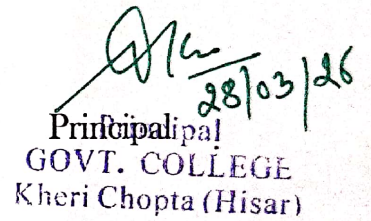 28/03/26
Principal
Principal
GOVT. COLLEGE
Kheri Chopta (Hisar)